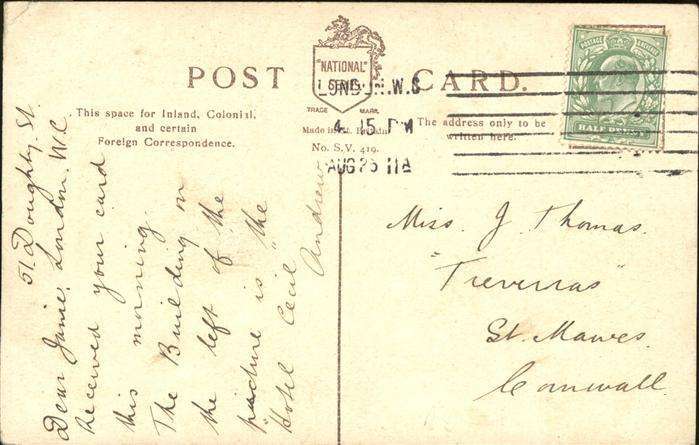 POST CARD.
"NATIONAL"
SERIES
TRADE MARK.
This space for Inland, Colonial,
and certain
Foreign Correspondence.
Made in Gt. Britain
No. S.V. 419.
The address only to be
written here.
LONDON.W.S
4.15 PM
AUG 25 11
POSTAGE REVENUE
HALF PENNY
51 Doughty St.
London. W.C
Dear Janie,
Received your card
this morning.
The Building on
the left of the
picture is "the
Hotel Cecil"
Andrew
Miss. J. Thomas.
"Treverras"
St. Mawes.
Cornwall.